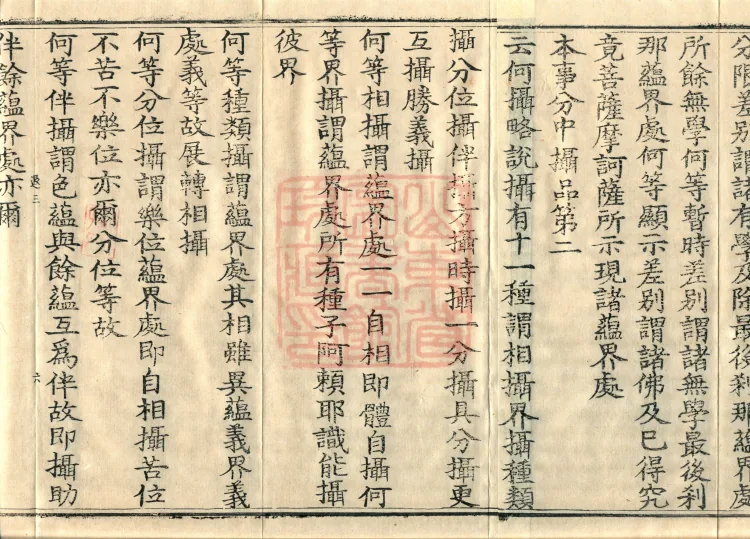 分限差別謂諸有學及除最後刹那蘊界處
所餘無學何等暫時差別謂諸無學最後刹
那蘊界處何等顯示差別謂諸佛及已得究
竟菩薩摩訶薩所示現諸蘊界處
本事分中攝品第二
云何攝略說攝有十一種謂相攝界攝種類
攝分位攝伴攝方攝時攝一分攝具分攝更
互攝勝義攝
何等相攝謂蘊界處一一自相即體自攝何
等界攝謂蘊界處所有種子阿賴耶識能攝
彼界
何等種類攝謂蘊界處其相雖異蘊義界義
處義等故展轉相攝
何等分位攝謂樂位蘊界處即自相攝苦位
不苦不樂位亦爾分位等故
何等伴攝謂色蘊與餘蘊互爲伴故即攝助
伴餘蘊界處亦爾
三
六